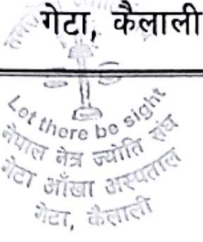 गेटा, कैलाली
Let there be sight
नेपाल नेत्र ज्योति संघ
गेटा आँखा अस्पताल
गेटा, कैलाली